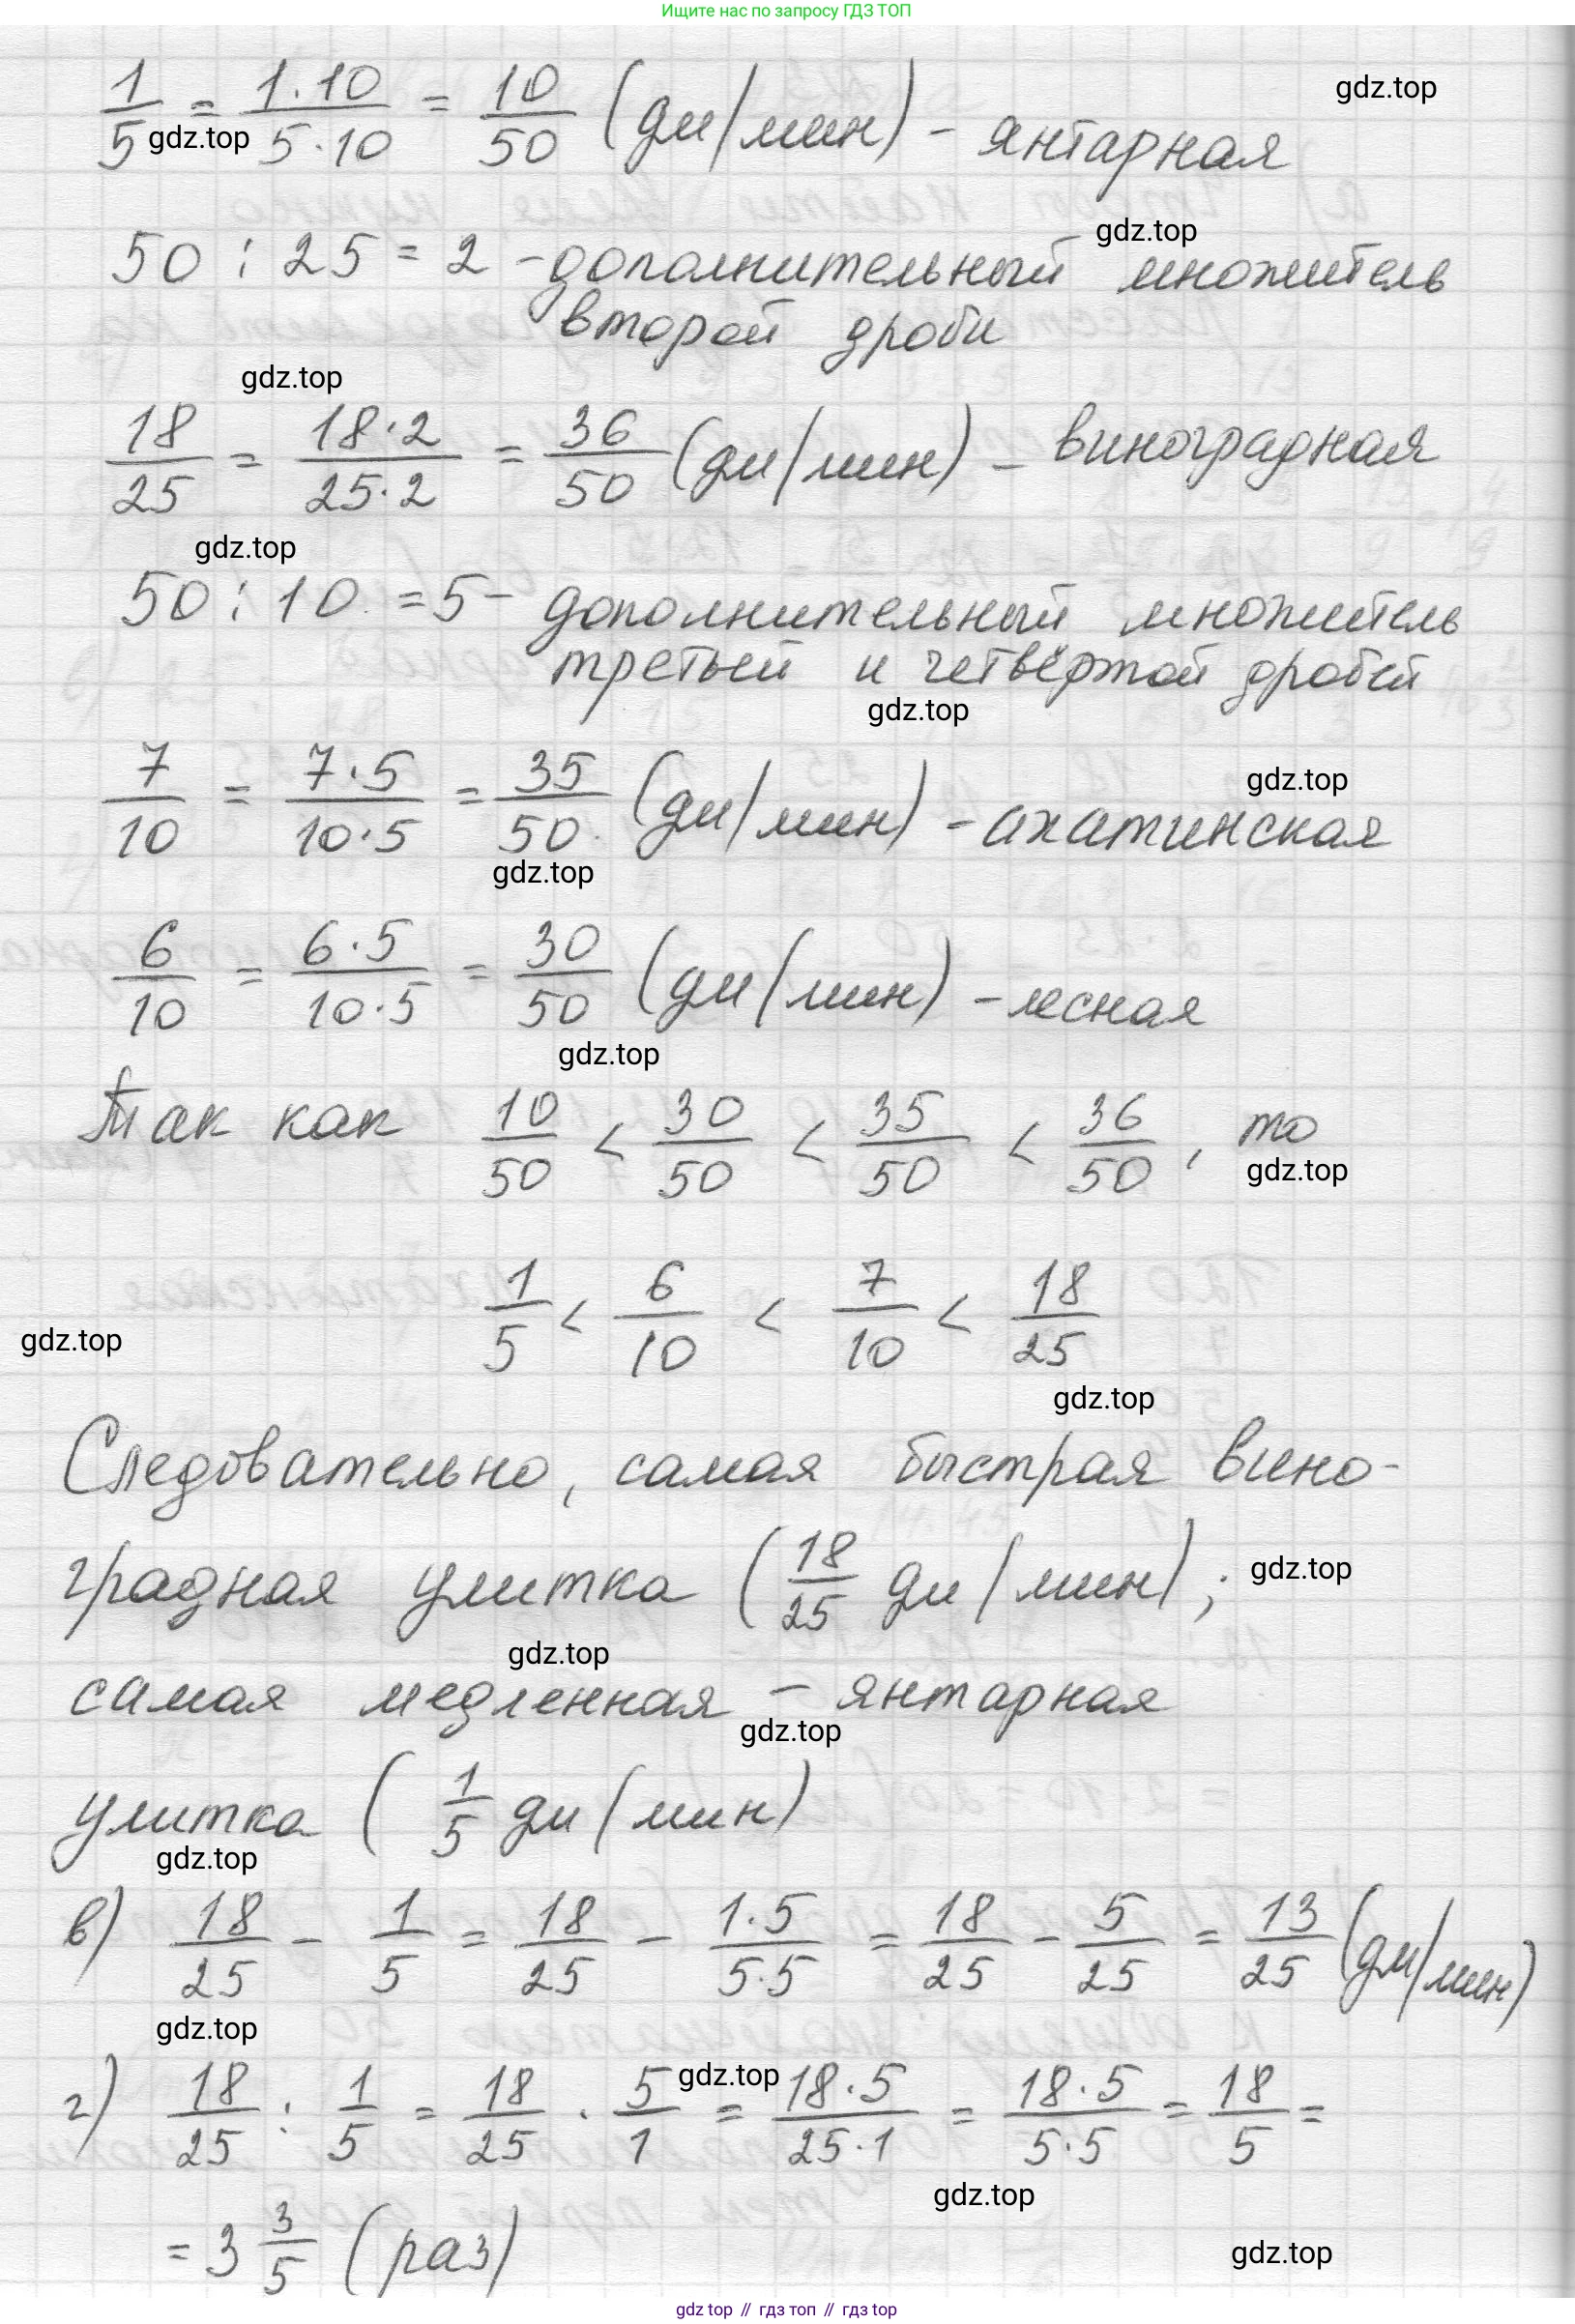 Ищите нас по запросу ГДЗ ТОП
gdz.top
1/5 = 1·10/5·10 = 10/50 (дм/мин) - янтарная
gdz.top
gdz.top
50 : 25 = 2 - дополнительный множитель
второй дроби
gdz.top
18/25 = 18·2/25·2 = 36/50 (дм/мин) - виноградная
gdz.top
50 : 10 = 5 - дополнительный множитель
третьей и четвёртой дробей
gdz.top
7/10 = 7·5/10·5 = 35/50 (дм/мин) - ахатинская
gdz.top
gdz.top
6/10 = 6·5/10·5 = 30/50 (дм/мин) - лесная
gdz.top
Так как 10/50 < 30/50 < 35/50 < 36/50, то
gdz.top
1/5 < 6/10 < 7/10 < 18/25
gdz.top
gdz.top
Следовательно, самая быстрая вино-
градная улитка (18/25 дм/мин);
gdz.top
gdz.top
самая медленная - янтарная
gdz.top
улитка (1/5 дм/мин)
gdz.top
в) 18/25 - 1/5 = 18/25 - 1·5/5·5 = 18/25 - 5/25 = 13/25 (дм/мин)
gdz.top
г) 18/25 : 1/5 = 18/25 · 5/1 = 18·5/25·1 = 18·5/5·5 = 18/5 =
gdz.top
gdz.top
= 3 3/5 (раз)
gdz.top
gdz top // гдз топ // гдз top